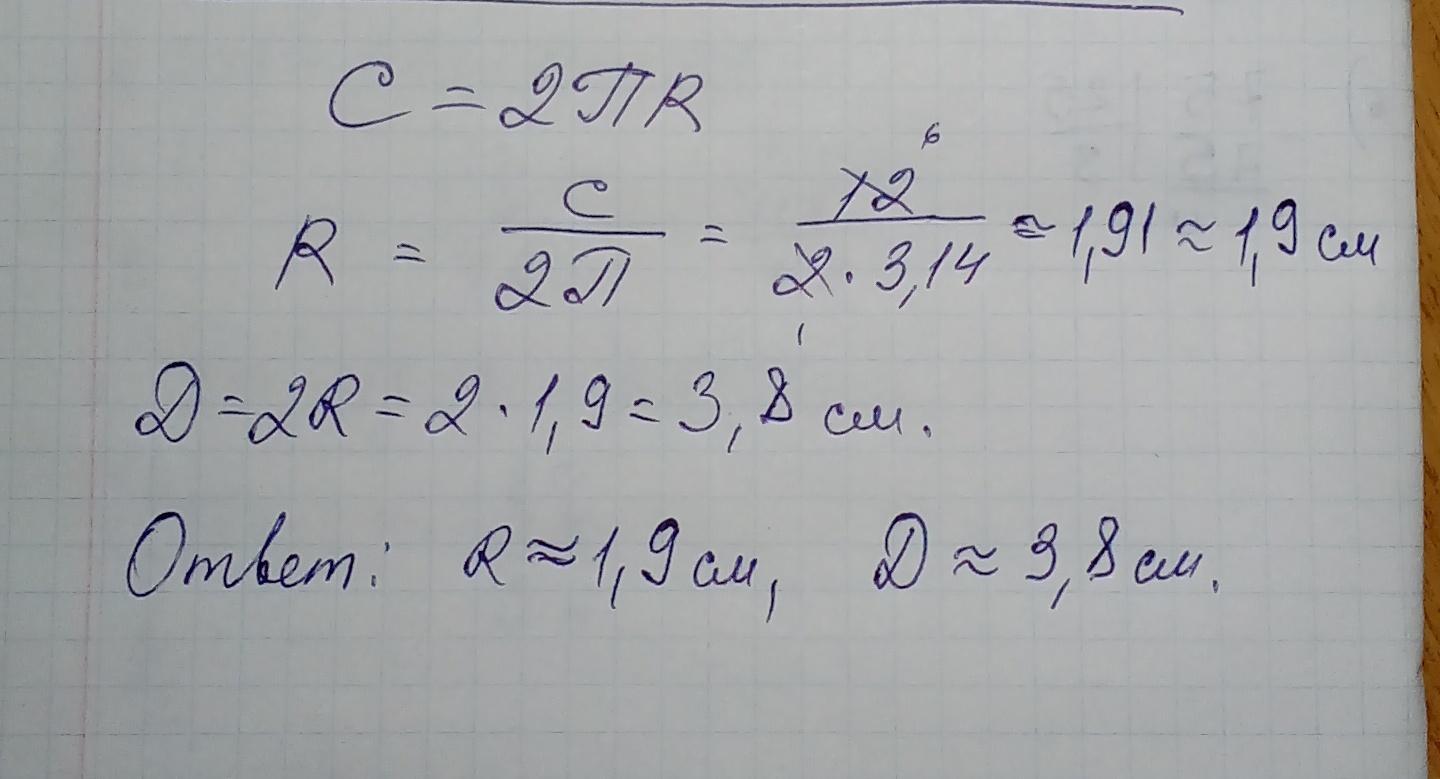 C = 2ПR
R = C/2П = 12/2·3,14 ≈ 1,91 ≈ 1,9 см
6
1
D = 2R = 2 · 1,9 = 3,8 см.
Ответ: R ≈ 1,9 см, D ≈ 3,8 см.